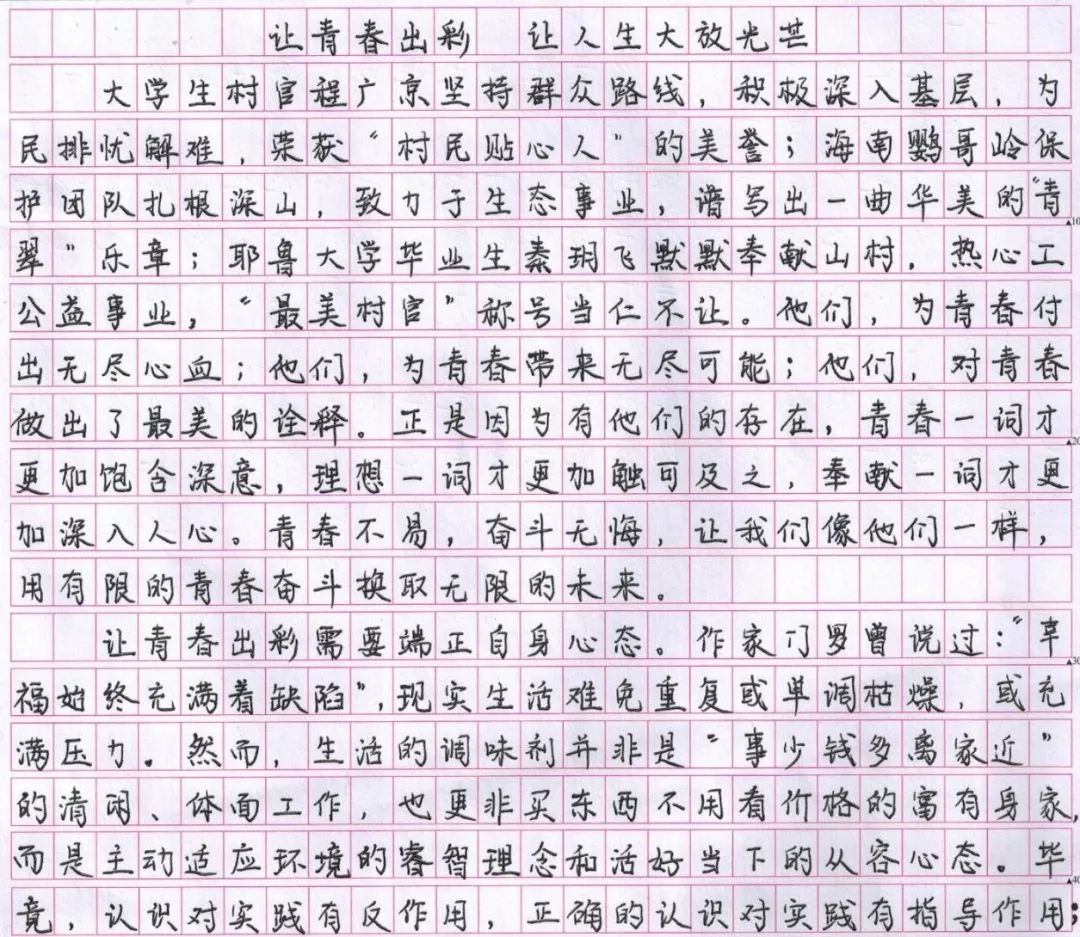 让青春出彩 让人生大放光芒
大学生村官程广京坚持群众路线，积极深入基层，为
民排忧解难，荣获“村民贴心人”的美誉；海南鹦哥岭保
护团队扎根深山，致力于生态事业，谱写出一曲华美的“青
翠”乐章；耶鲁大学毕业生秦玥飞默默奉献山村，热心工
公益事业，“最美村官”称号当仁不让。他们，为青春付
出无尽心血；他们，为青春带来无尽可能；他们，对青春
做出了最美的诠释。正是因为有他们的存在，青春一词才
更加饱含深意，理想一词才更加触可及之，奉献一词才更
加深入人心。青春不易，奋斗无悔，让我们像他们一样，
用有限的青春奋斗换取无限的未来。
让青春出彩需要端正自身心态。作家门罗曾说过：“幸
福始终充满着缺陷”，现实生活难免重复或单调枯燥，或充
满压力。然而，生活的调味剂并非是“事少钱多离家近”
的清闲、体面工作，也更非买东西不用看价格的富有身家，
而是主动适应环境的睿智理念和活好当下的从容心态。毕
竟，认识对实践有反作用，正确的认识对实践有指导作用；